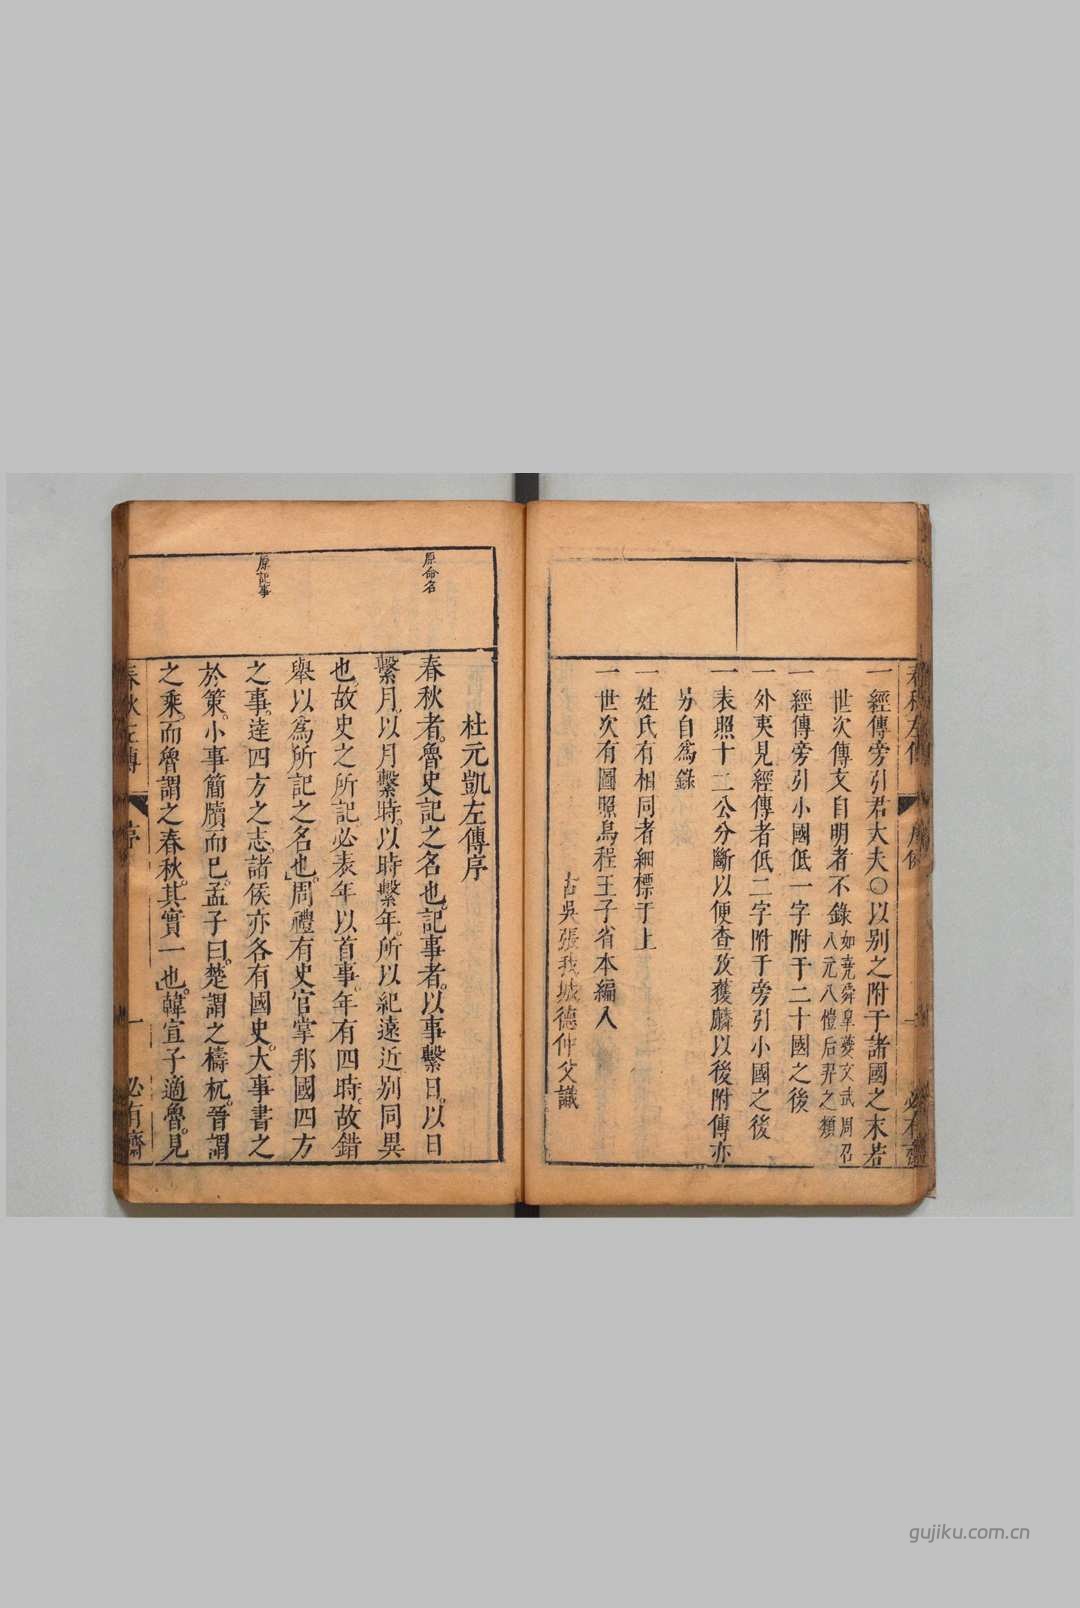 一經傳旁引君大夫○以别之附于諸國之末若
世次傳文自明者不錄如堯舜皐夔文武周召
八元八愷后羿之類
一經傳旁引小國低一字附于二十國之後
一外夷見經傳者低二字附于旁引小國之後
一表照十二公分斷以便查攷獲麟以後附傳亦
另自為錄
一姓氏有相同者細標于上
一世次有圖照烏程王子省本編入
古吳張我城德仲父識
原命名
原記事
杜元凱左傳序
春秋者。魯史記之名也。記事者。以事繫日。以日
繫月。以月繫時。以時繫年。所以紀遠近別同異
也。故史之所記。必表年以首事。年有四時。故錯
舉以為所記之名也。周禮有史官。掌邦國四方
之事。達四方之志。諸侯亦各有國史。大事書之
於策。小事簡牘而已。孟子曰。楚謂之檮杌。晉謂
之乘。而魯謂之春秋。其實一也。韓宣子適魯。見
春秋左傳
序
一
必有齋
gujiku.com.cn